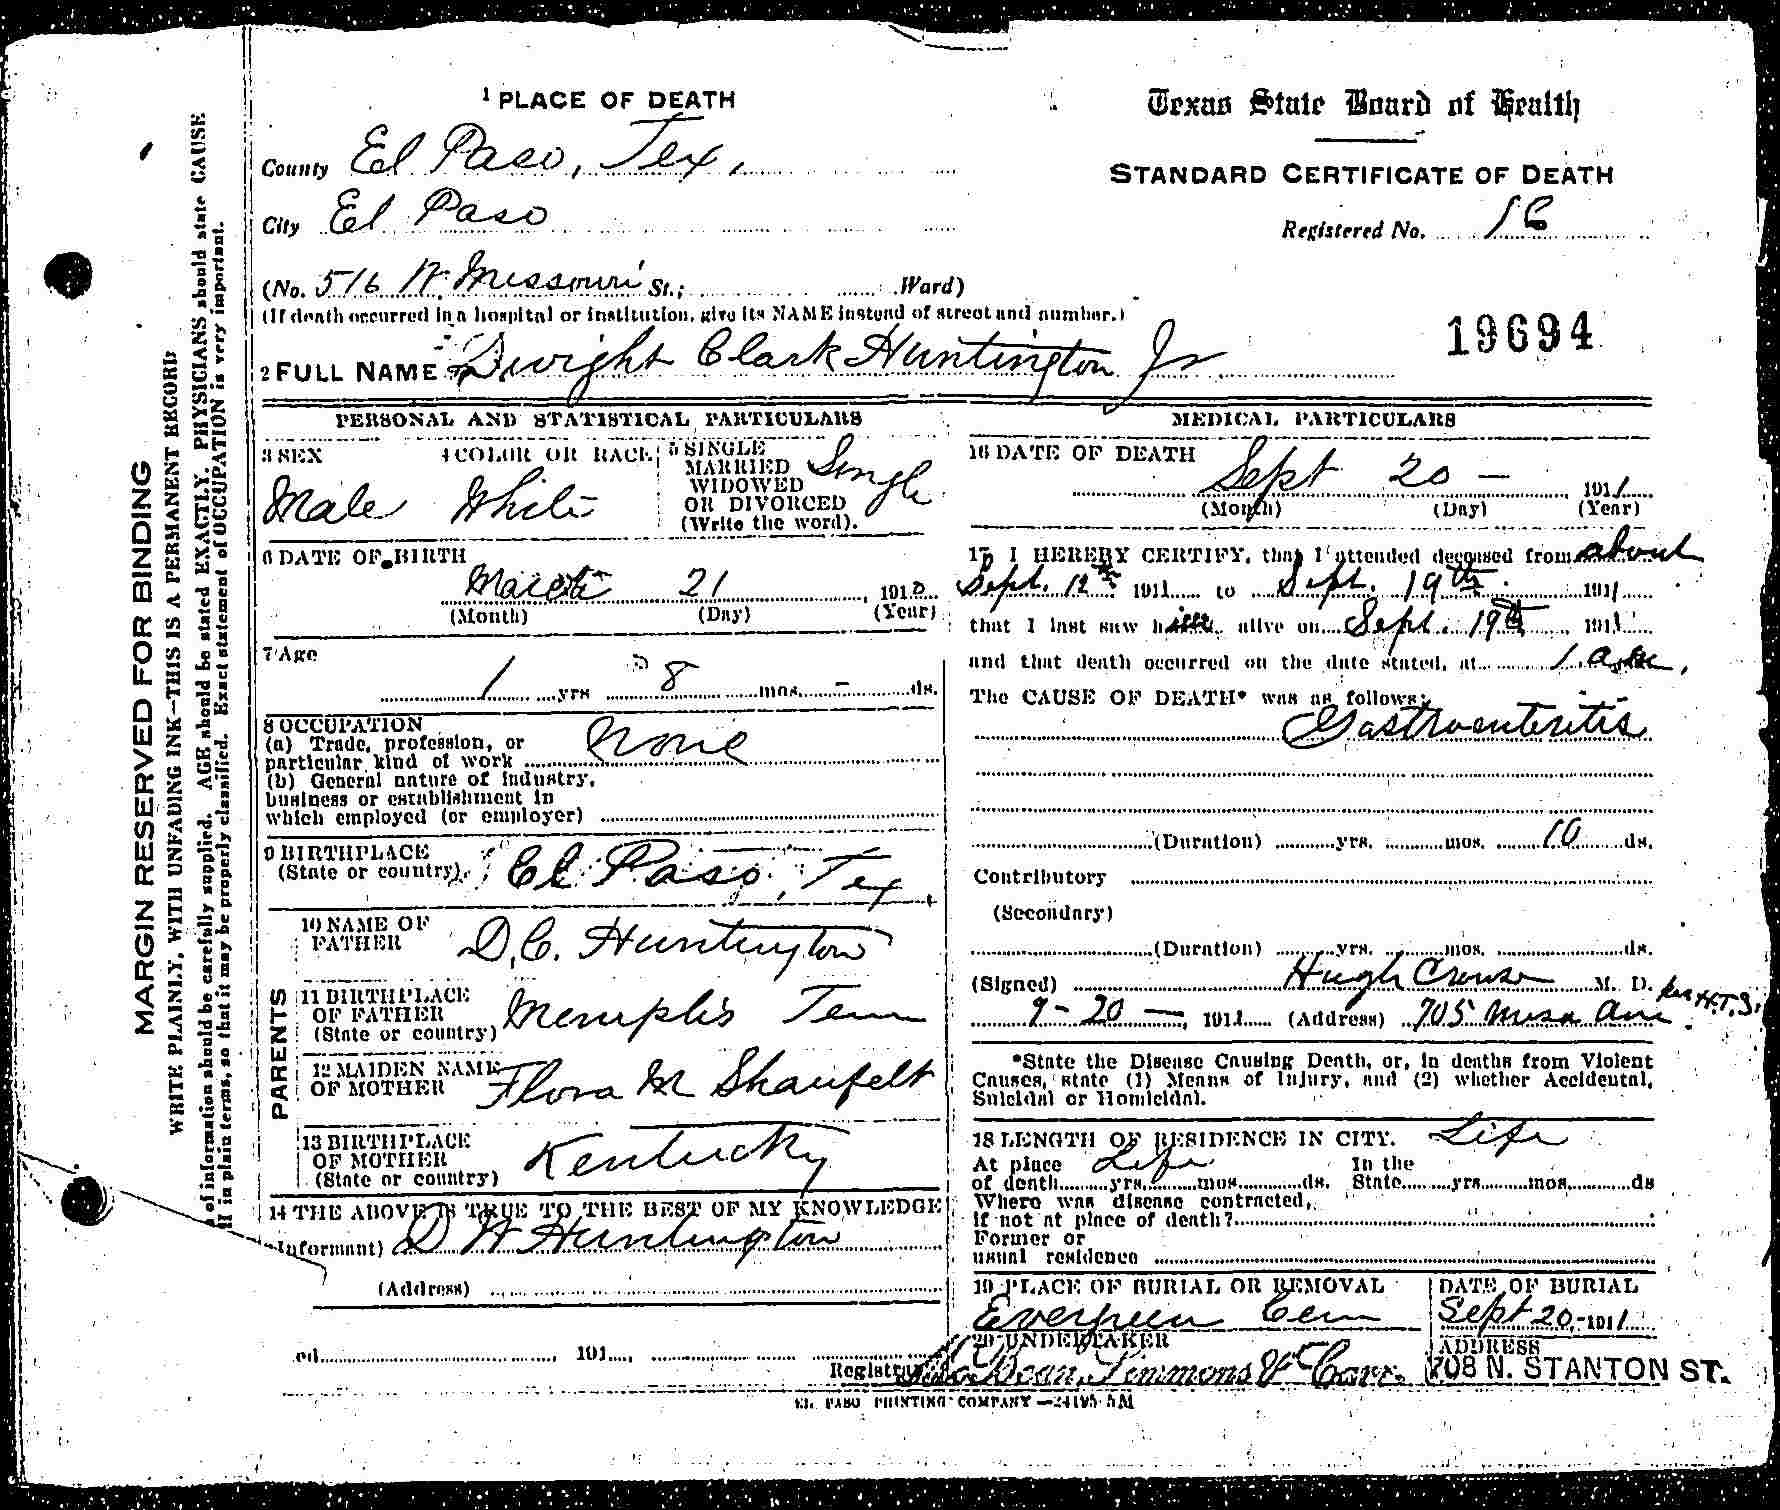 MARGIN RESERVED FOR BINDING
WRITE PLAINLY, WITH UNFADING INK—THIS IS A PERMANENT RECORD
of information should be carefully supplied. AGE should be stated EXACTLY. PHYSICIANS should state CAUSE
in plain terms, so that it may be properly classified. Exact statement of OCCUPATION is very important.
1 PLACE OF DEATH
County El Paso, Tex,
City El Paso
(No. 516 N. Missouri St.; Ward)
(If death occurred in a hospital or institution, give its NAME instead of street and number.)
2 FULL NAME Dwight Clark Huntington Jr
Texas State Board of Health
STANDARD CERTIFICATE OF DEATH
Registered No. 16
19694
PERSONAL AND STATISTICAL PARTICULARS
3 SEX 4 COLOR OR RACE 5 SINGLE
MARRIED
WIDOWED
OR DIVORCED
(Write the word).
Male White Single
6 DATE OF BIRTH
March 21 1910
(Month) (Day) (Year)
7 Age
1 yrs 8 mos. - ds.
8 OCCUPATION
(a) Trade, profession, or
particular kind of work None
(b) General nature of industry,
business or establishment in
which employed (or employer)
9 BIRTHPLACE
(State or country). El Paso, Tex.
PARENTS
10 NAME OF
FATHER D. C. Huntington
11 BIRTHPLACE
OF FATHER
(State or country) Memphis Tenn
12 MAIDEN NAME
OF MOTHER Flora M Shaufelt
13 BIRTHPLACE
OF MOTHER
(State or country) Kentucky
14 THE ABOVE IS TRUE TO THE BEST OF MY KNOWLEDGE
Informant) D W Huntington
(Address)
ed 191
Registrar
MEDICAL PARTICULARS
16 DATE OF DEATH
Sept 20 - 1911
(Month) (Day) (Year)
17 I HEREBY CERTIFY, that I attended deceased from about
Sept. 12th 1911 to Sept. 19th 1911
that I last saw him alive on Sept. 19th 1911
and that death occurred on the date stated, at 1 a.m.
The CAUSE OF DEATH* was as follows:
Gastroenteritis
(Duration) yrs. mos. 10 ds.
Contributory
(Secondary)
(Duration) yrs. mos. ds.
(Signed) Hugh Crouse M. D.
9 - 20 - 1911 (Address) 705 Mesa Ave. Per H.T.S.
*State the Disease Causing Death, or, in deaths from Violent
Causes, state (1) Means of Injury, and (2) whether Accidental,
Suicidal or Homicidal.
18 LENGTH OF RESIDENCE IN CITY. Life
At place Life In the
of death yrs. mos. ds. State yrs. mos. ds
Where was disease contracted,
if not at place of death?
Former or
usual residence
19 PLACE OF BURIAL OR REMOVAL
Evergreen Cem
DATE OF BURIAL
Sept 20, 1911
20 UNDERTAKER
Bean, Simmons & Carr.
ADDRESS
708 N. STANTON ST.
EL PASO PRINTING COMPANY—24195 5M